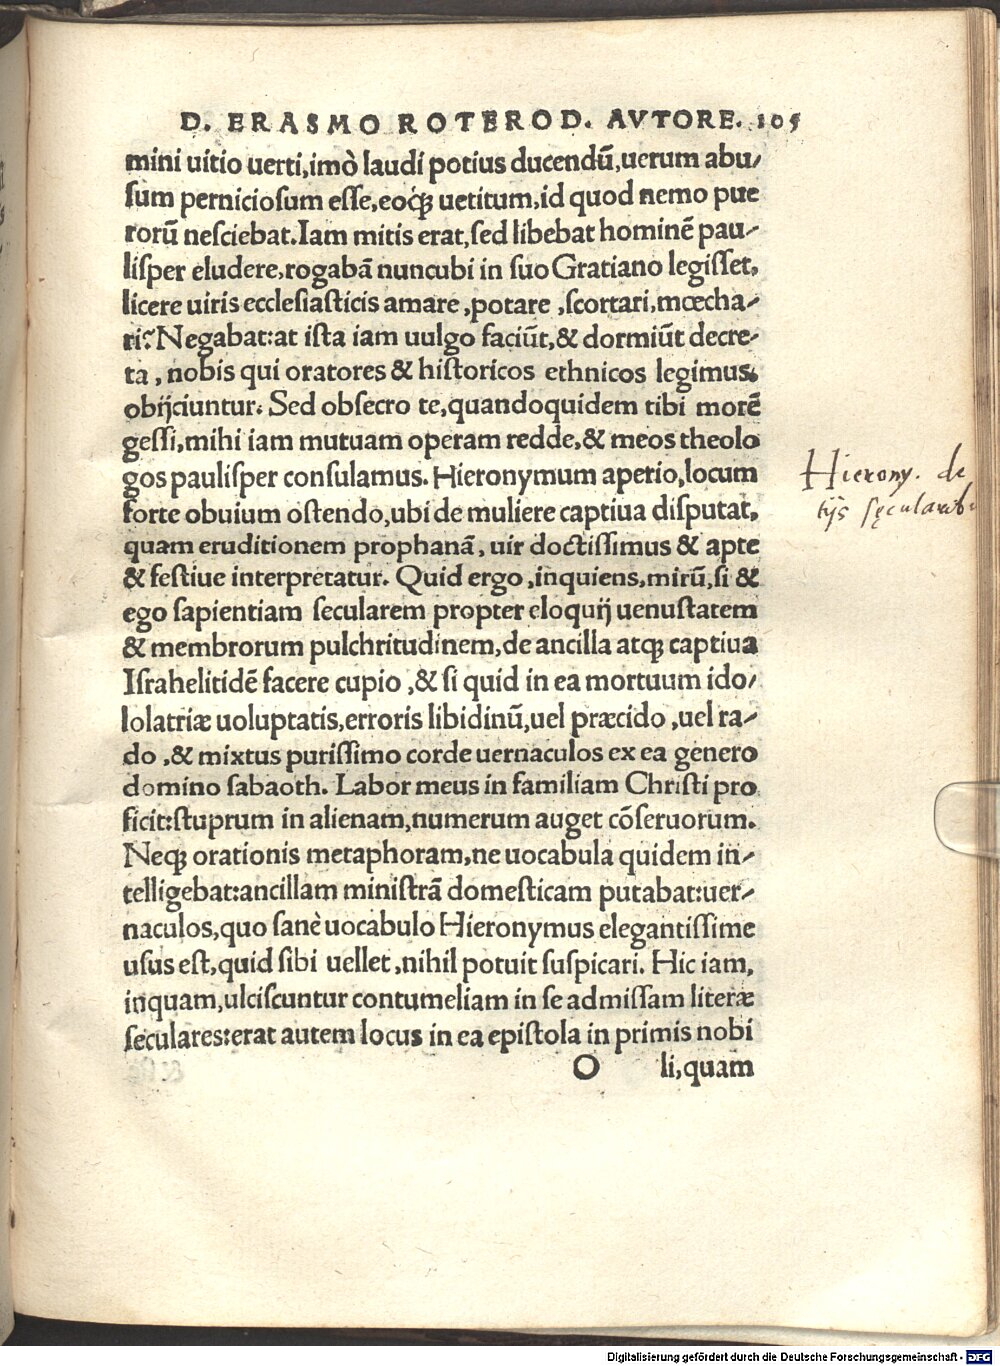 D. ERASMO ROTEROD. AVTORE. 105
mini uitio uerti,imò laudi potius ducendũ,uerum abu⸗
ſum pernicioſum eſſe,eoq́ꝫ uetitum,id quod nemo pue
rorũ neſciebat.Iam mitis erat,ſed libebat hominẽ pau⸗
liſper eludere,rogabã nuncubi in ſuo Gratiano legiſſet,
licere uiris eccleſiaſticis amare ,potare ,ſcortari,mœcha⸗
ri? Negabat:at iſta iam uulgo faciũt,& dormiũt decre⸗
ta , nobis qui oratores & hiſtoricos ethnicos legimus,
obijciuntur. Sed obſecro te,quandoquidem tibi morẽ
geſſi,mihi iam mutuam operam redde,& meos theolo
gos pauliſper conſulamus. Hieronymum aperio,locum
forte obuium oſtendo,ubi de muliere captiua diſputat,
quam eruditionem prophanã, uir doctiſſimus & apte
& feſtiue interpretatur. Quid ergo ,inquiens,mirũ,ſi &
ego ſapientiam ſecularem propter eloquij uenuſtatem
& membrorum pulchritudinem,de ancilla atqꝫ captiua
Iſrahelitidẽ facere cupio ,& ſi quid in ea mortuum ido⸗
lolatriæ uoluptatis,erroris libidinũ,uel præcido ,uel ra⸗
do ,& mixtus puriſſimo corde uernaculos ex ea genero
domino ſabaoth. Labor meus in familiam Chriſti pro
ficit:ſtuprum in alienam,numerum auget cõſeruorum.
Neqꝫ orationis metaphoram,ne uocabula quidem in⸗
telligebat:ancillam miniſtrã domeſticam putabat:uer⸗
naculos,quo ſanè uocabulo Hieronymus elegantiſſime
uſus eſt,quid ſibi uellet ,nihil potuit ſuſpicari. Hic iam,
inquam,ulciſcuntur contumeliam in ſe admiſſam literæ
ſeculares:erat autem locus in ea epiſtola in primis nobi
O li,quam
Hierony. de
lr̃is ſęcularib.
Digitalisierung gefördert durch die Deutsche Forschungsgemeinschaft - DFG